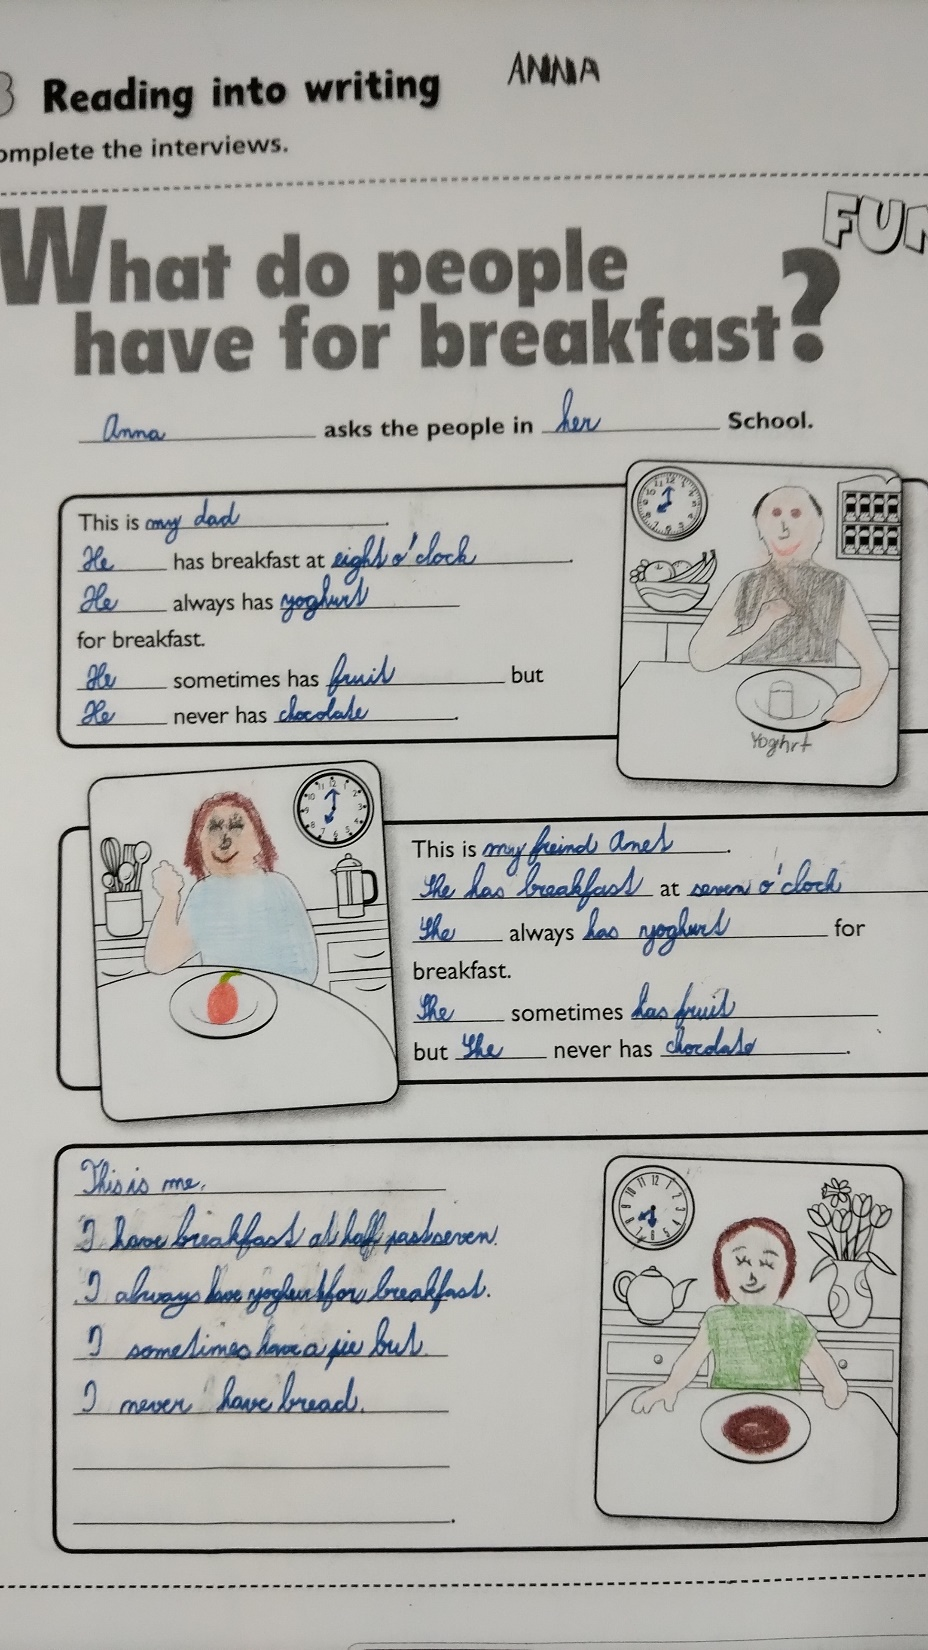 Reading into writing ANNA
omplete the interviews.
FUN
What do people
have for breakfast?
Anna asks the people in her School.
This is my dad.
He has breakfast at eight o'clock.
He always has yoghurt
for breakfast.
He sometimes has fruit but
He never has chocolate.
Yoghrt
This is my freind Anet.
She has breakfast at seven o'clock
She always has yoghurt for
breakfast.
She sometimes has fruit
but She never has chocolate.
This is me.
I have breakfast at half past seven.
I always have yoghurt for breakfast.
I sometimes have a pie but
I never have bread.